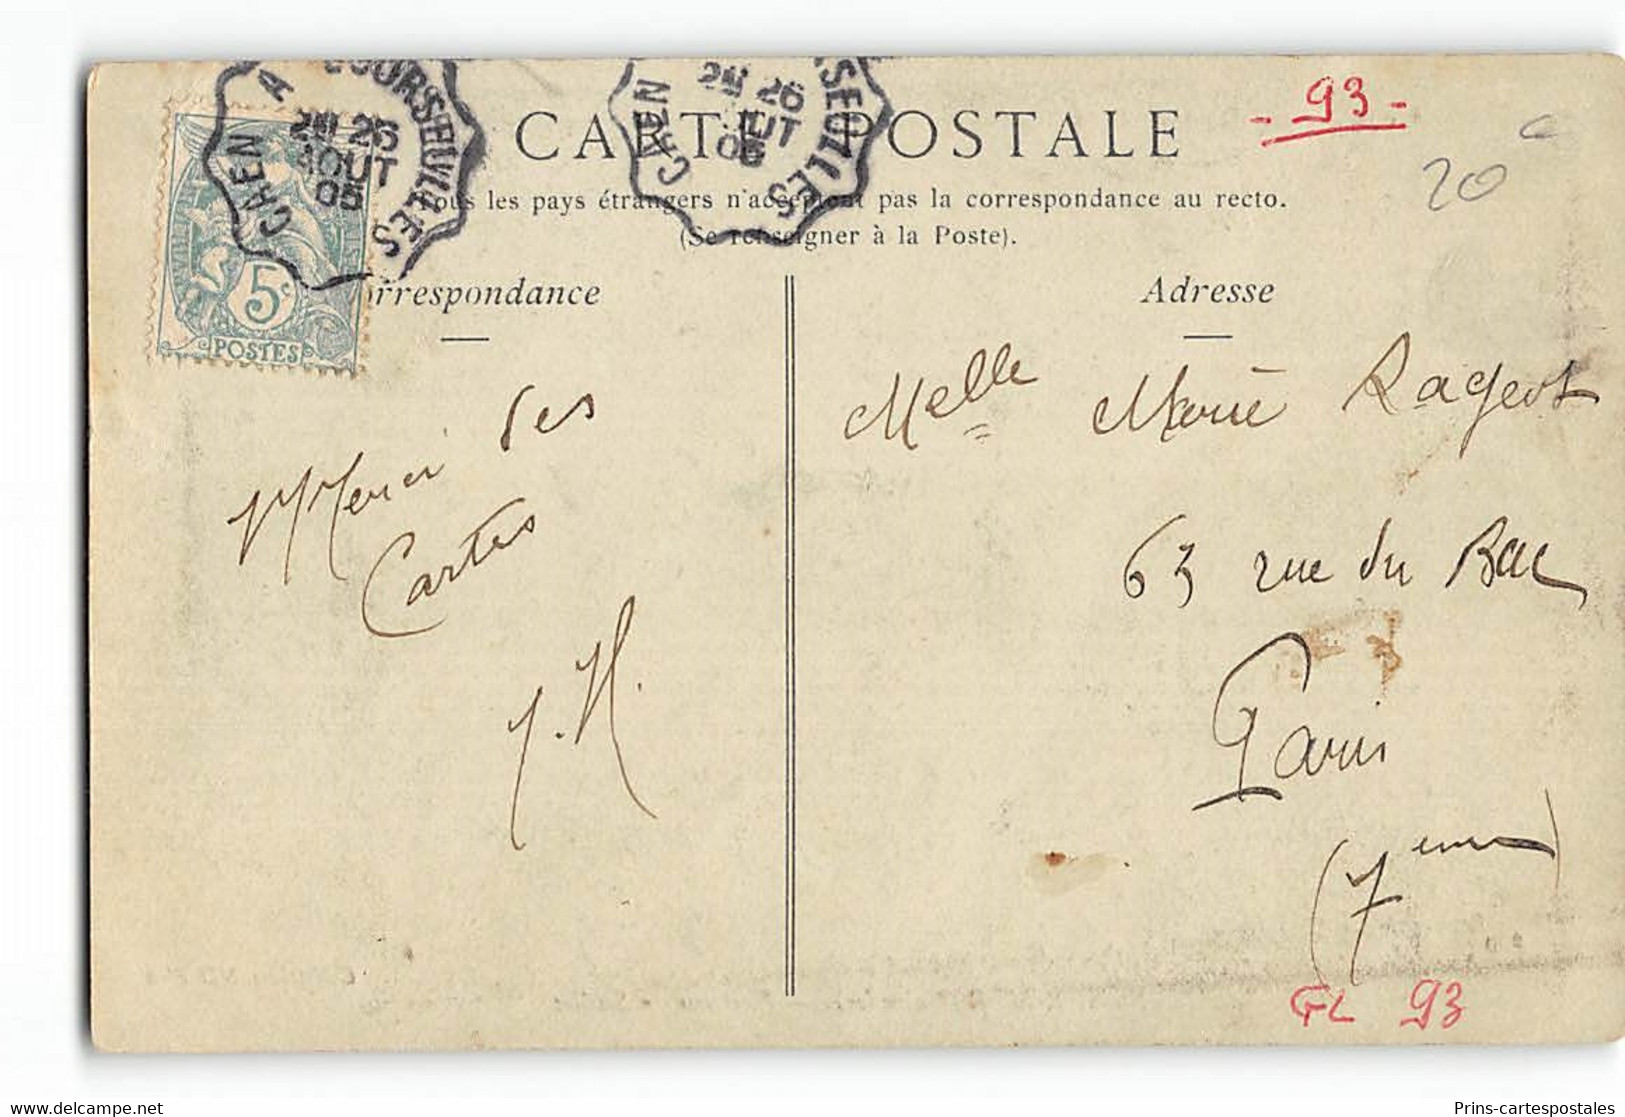 CAEN A COURSEULLES
26
AOUT
05
CAEN
26
05
CARTE POSTALE
- 93 -
20
Tous les pays étrangers n'acceptent pas la correspondance au recto.
(Se renseigner à la Poste).
5c
POSTES
Correspondance
Adresse
Merci des
Cartes
Melle Marie Rageot
63 rue du Bac
Paris
(7eme)
93
Prins-cartespostales